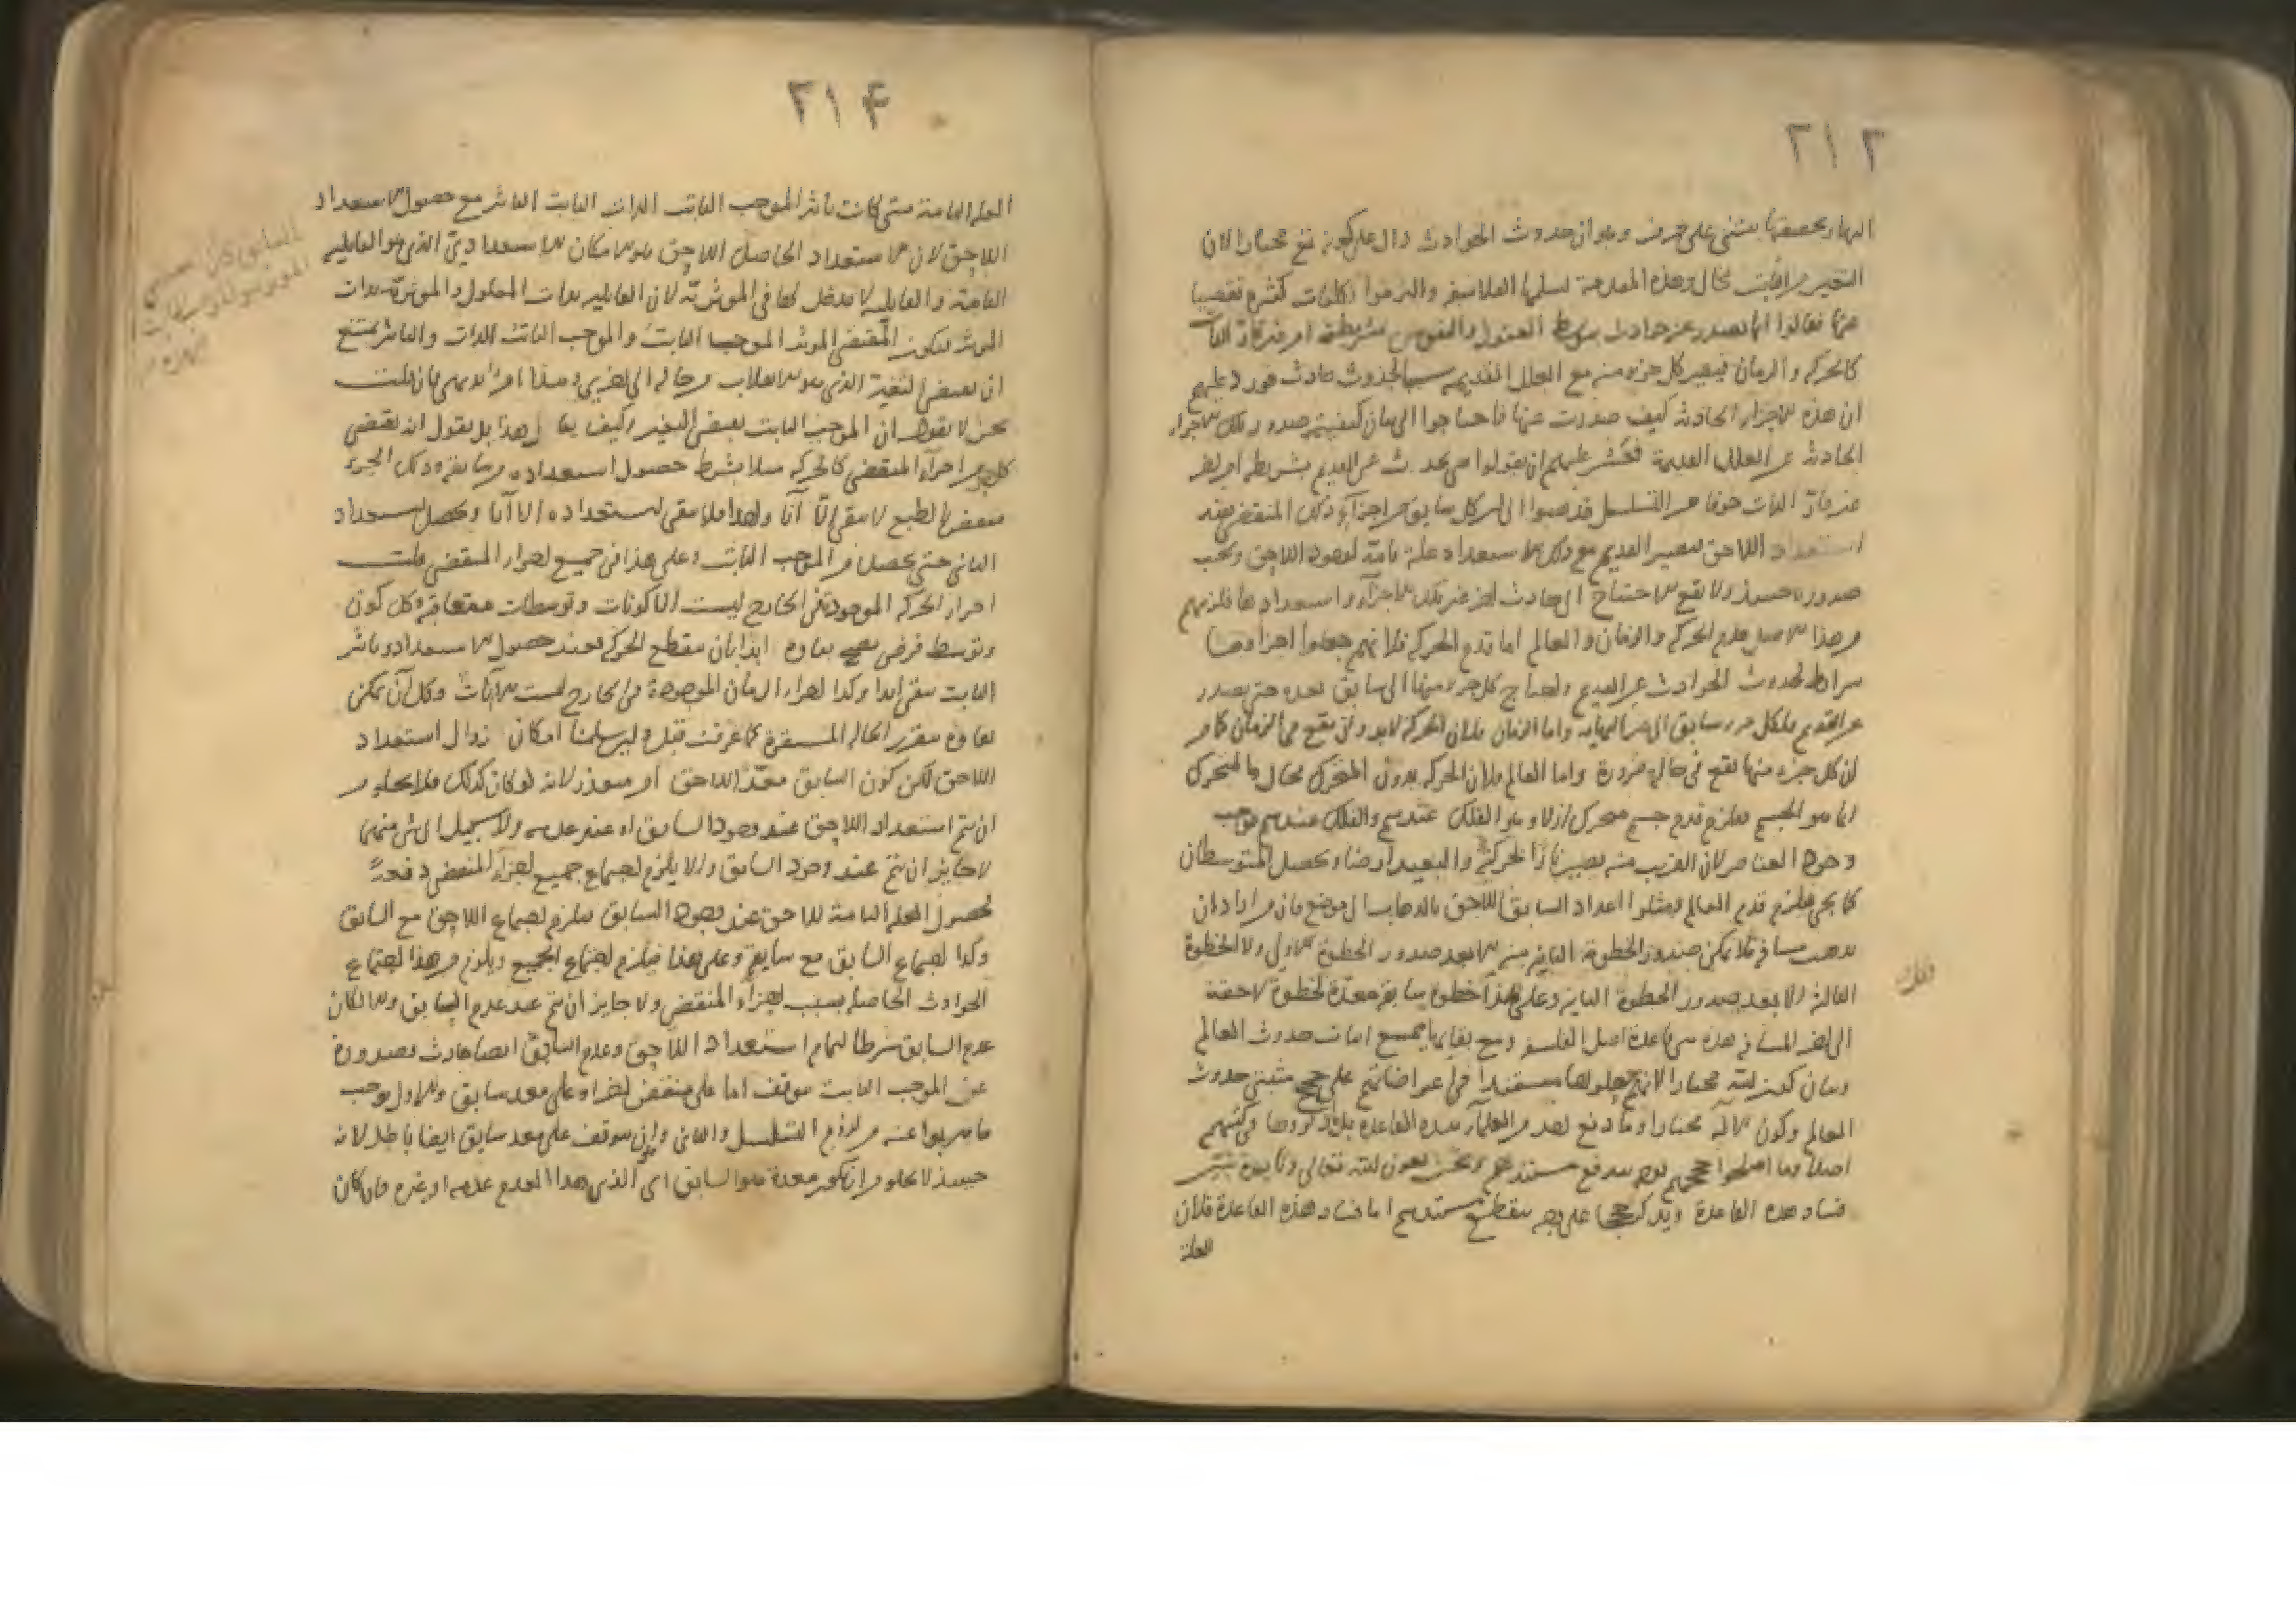 ٢١٣
النهار وتحقيقها يبتنى على حرف وهو ان حدوث الحوادث دال على كونه تع مختارا لان
التغير من الثابت محال وهذه المقدمة تسلمها الفلاسفة والتزموا تكلفات كثيرة تفصيا
عنها فقالوا انما تصدر عنه حوادث بتوسط العقول والنفوس بشريطة امر غير قار الذات
كالحركة والزمان فيصير كل جزء منه مع العلل القديمة سببا لحدوث حادث فورد عليهم
ان هذه الاجزاء الحادثة كيف صدرت عنها فاحتاجوا الى بيان كيفية صدور تلك الاجزاء
الحادثة عن العلل القديمة فعسر عليهم ان يقولوا يحدث عن القديم بشريطة امر اخر
غير قار الذات خوفا من التسلسل فذهبوا الى ان كل سابق من اجزاء ذلك المنقضى يفيد
استعداد اللاحق فيصير القديم مع ذلك الاستعداد علة تامة لوجود اللاحق ويجب
صدوره حينئذ ولا يقع الاحتياج الى حادث اخر غير تلك الاجزاء واستعداداتها فلزمهم
من هذا الاصل قدم الحركة والزمان والعالم اما قدم الحركة فلانهم جعلوا اجزاءها
شرائط لحدوث الحوادث عن القديم واحتاج كل جزء منها الى سابق بعده حتى يصدر
عن القديم فلكل جزء سابق الى غير النهاية واما الزمان فلان الحركة لا بد وان تقع فى الزمان فامر
لان كل جزء منها تقع فى حالة ضرورة واما العالم فلان الحركة بدون المتحرك محال والمتحرك
انما هو الجسم فلزم قدم جسم متحرك ازلا وهو الفلك عندهم والفلك عندهم يوجب
وجود العناصر لان القريب منه يصير نارا لحركته والبعيد ارضا ويحصل المتوسطان
كما يجئ فلزم قدم العالم ومثلوا اعداد السابق اللاحق بالذهاب الى موضع فان من اراد ان
يذهب مسافة لا يمكن صدور الخطوة الثانية منه الا بعد صدور الخطوة الاولى ولا الخطوة
الثالثة الا بعد صدور الخطوة الثانية وعلى هذا خطوة سابقة معدة لخطوة لاحقة
الى اخر المسافة هذه القاعدة اصل الفلسفة ومع بقائها يمتنع اثبات حدوث العالم
وبيان كون الله مختارا لانهم جعلوها مستندا فى اعتراضاتهم على حجج مثبتى حدوث
العالم وكون الاله مختارا وما دفع احد من العلماء هذه القاعدة بل ذكروها فى كتبهم
اصلا وما اصلحوا حججهم بوجه يدفع مستندهم ونحن بعون الله تعالى وتأييده نبين
فساد هذه القاعدة ونذكر حججا على وجه ينقطع مستندهم اما فساد هذه القاعدة فلان
العلة
٢١٤
العلة التامة متى كانت تأثر الموجب الثابت الذات الثابت التأثر مع حصول الاستعداد
اللاحق لان الاستعداد الحاصل اللاحق هو الامكان الاستعدادى الذى هو القابلية
التامة والقابلية لا مدخل لها فى المؤثرية لان القابلية بذات المعلول والمؤثرية بذات
المؤثر فيكون المقتضى المؤثر الموجب الثابت والموجب الثابت الذات والتأثر يمتنع
ان يقتضى التغير الذى هو الانقلاب من حالة الى اخرى وهذا امر بديهى فان قلت
نحن لا نقول ان الموجب الثابت يقتضى التغير وكيف يقال هذا بل نقول انه يقتضى
كل جزء من اجزاء المنقضى كالحركة مثلا بشرط حصول استعداده من سابقه وذلك الجزء
منقض بالطبع لا يبقى الا آنا ولهذا لا يبقى استعداده الا آنا ويحصل استعداد
الثانى حتى يحصل من الموجب الثابت وعلى هذا فى جميع اجزاء المنقضى قلت
اجزاء الحركة الموجودة فى الخارج ليست الا كونات وتوسطات متعاقبة وكل كون
وتوسط فرض يصح بقاؤه ابدا بان تنقطع الحركة فعند حصول الاستعداد وتأثر
الثابت يبقى ابدا وكذا اجزاء الزمان الموجودة فى الخارج ليست الا آنات وكل آن يمكن
بقاؤه بتقرر الحالة المستقرة كما عرفت قبل ولئن سلمنا امكان زوال استعداد
اللاحق لكن كون السابق معدا للاحق امر متعذر لانه لو كان كذلك فلا يخلو من
ان يتم استعداد اللاحق عند وجود السابق او عند عدمه ولا سبيل الى شئ منهما
لا جايز ان يتم عند وجود السابق والا يلزم اجتماع جميع اجزاء المنقضى دفعة
لحصول العلة التامة للاحق عند وجود السابق فيلزم اجتماع اللاحق مع السابق
وكذا اجتماع السابق مع سابقه وعلى هذا فيلزم اجتماع الجميع ويلزم من هذا اجتماع
الحوادث الحاصلة بسبب اجزاء المنقضى ولا جايز ان يتم عند عدم السابق والا لكان
عدم السابق شرطا لتمام استعداد اللاحق وعدم السابق ايضا حادث فصدوره
عن الموجب الثابت موقوف اما على منقض اخر او على معد سابق والاول يوجب
ما هربوا عنه من لزوم التسلسل والثانى وان يتوقف على معد سابق ايضا باطل لانه
حينئذ لا يخلو من ان يكون معده هو السابق اى الذى هذا العدم عدمه او غيره فان كان